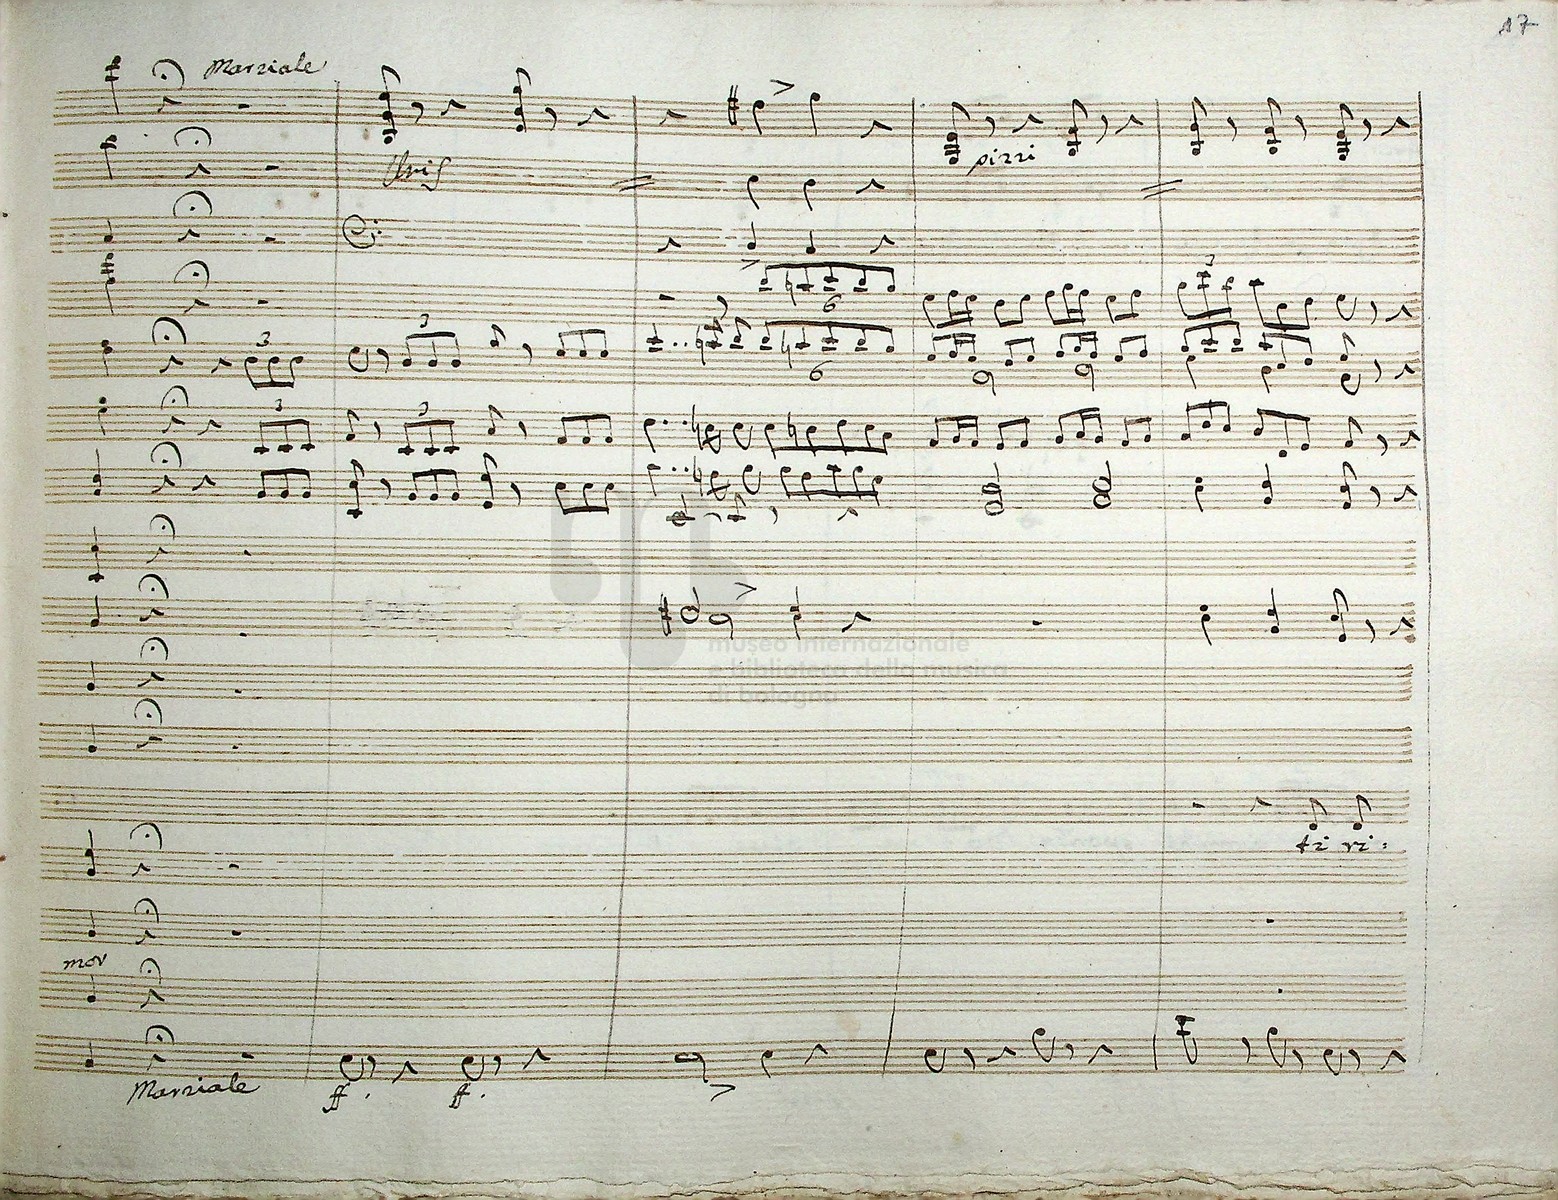 17
Marziale
Unis
pizzi
3
6
3
3
6
3
3
museo internazionale
e biblioteca della musica
di bologna
ti ri:
mor
Marziale
ff. ff.